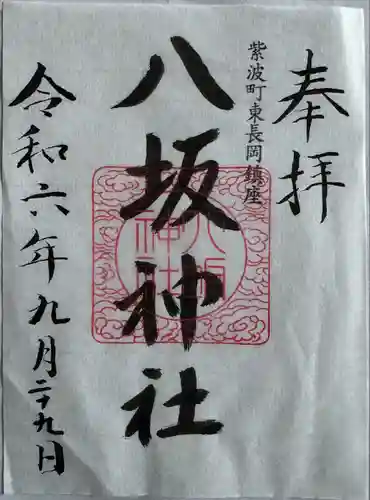 奉拝
紫波町東長岡鎮座
八坂神社
八坂神社
令和六年九月二十九日